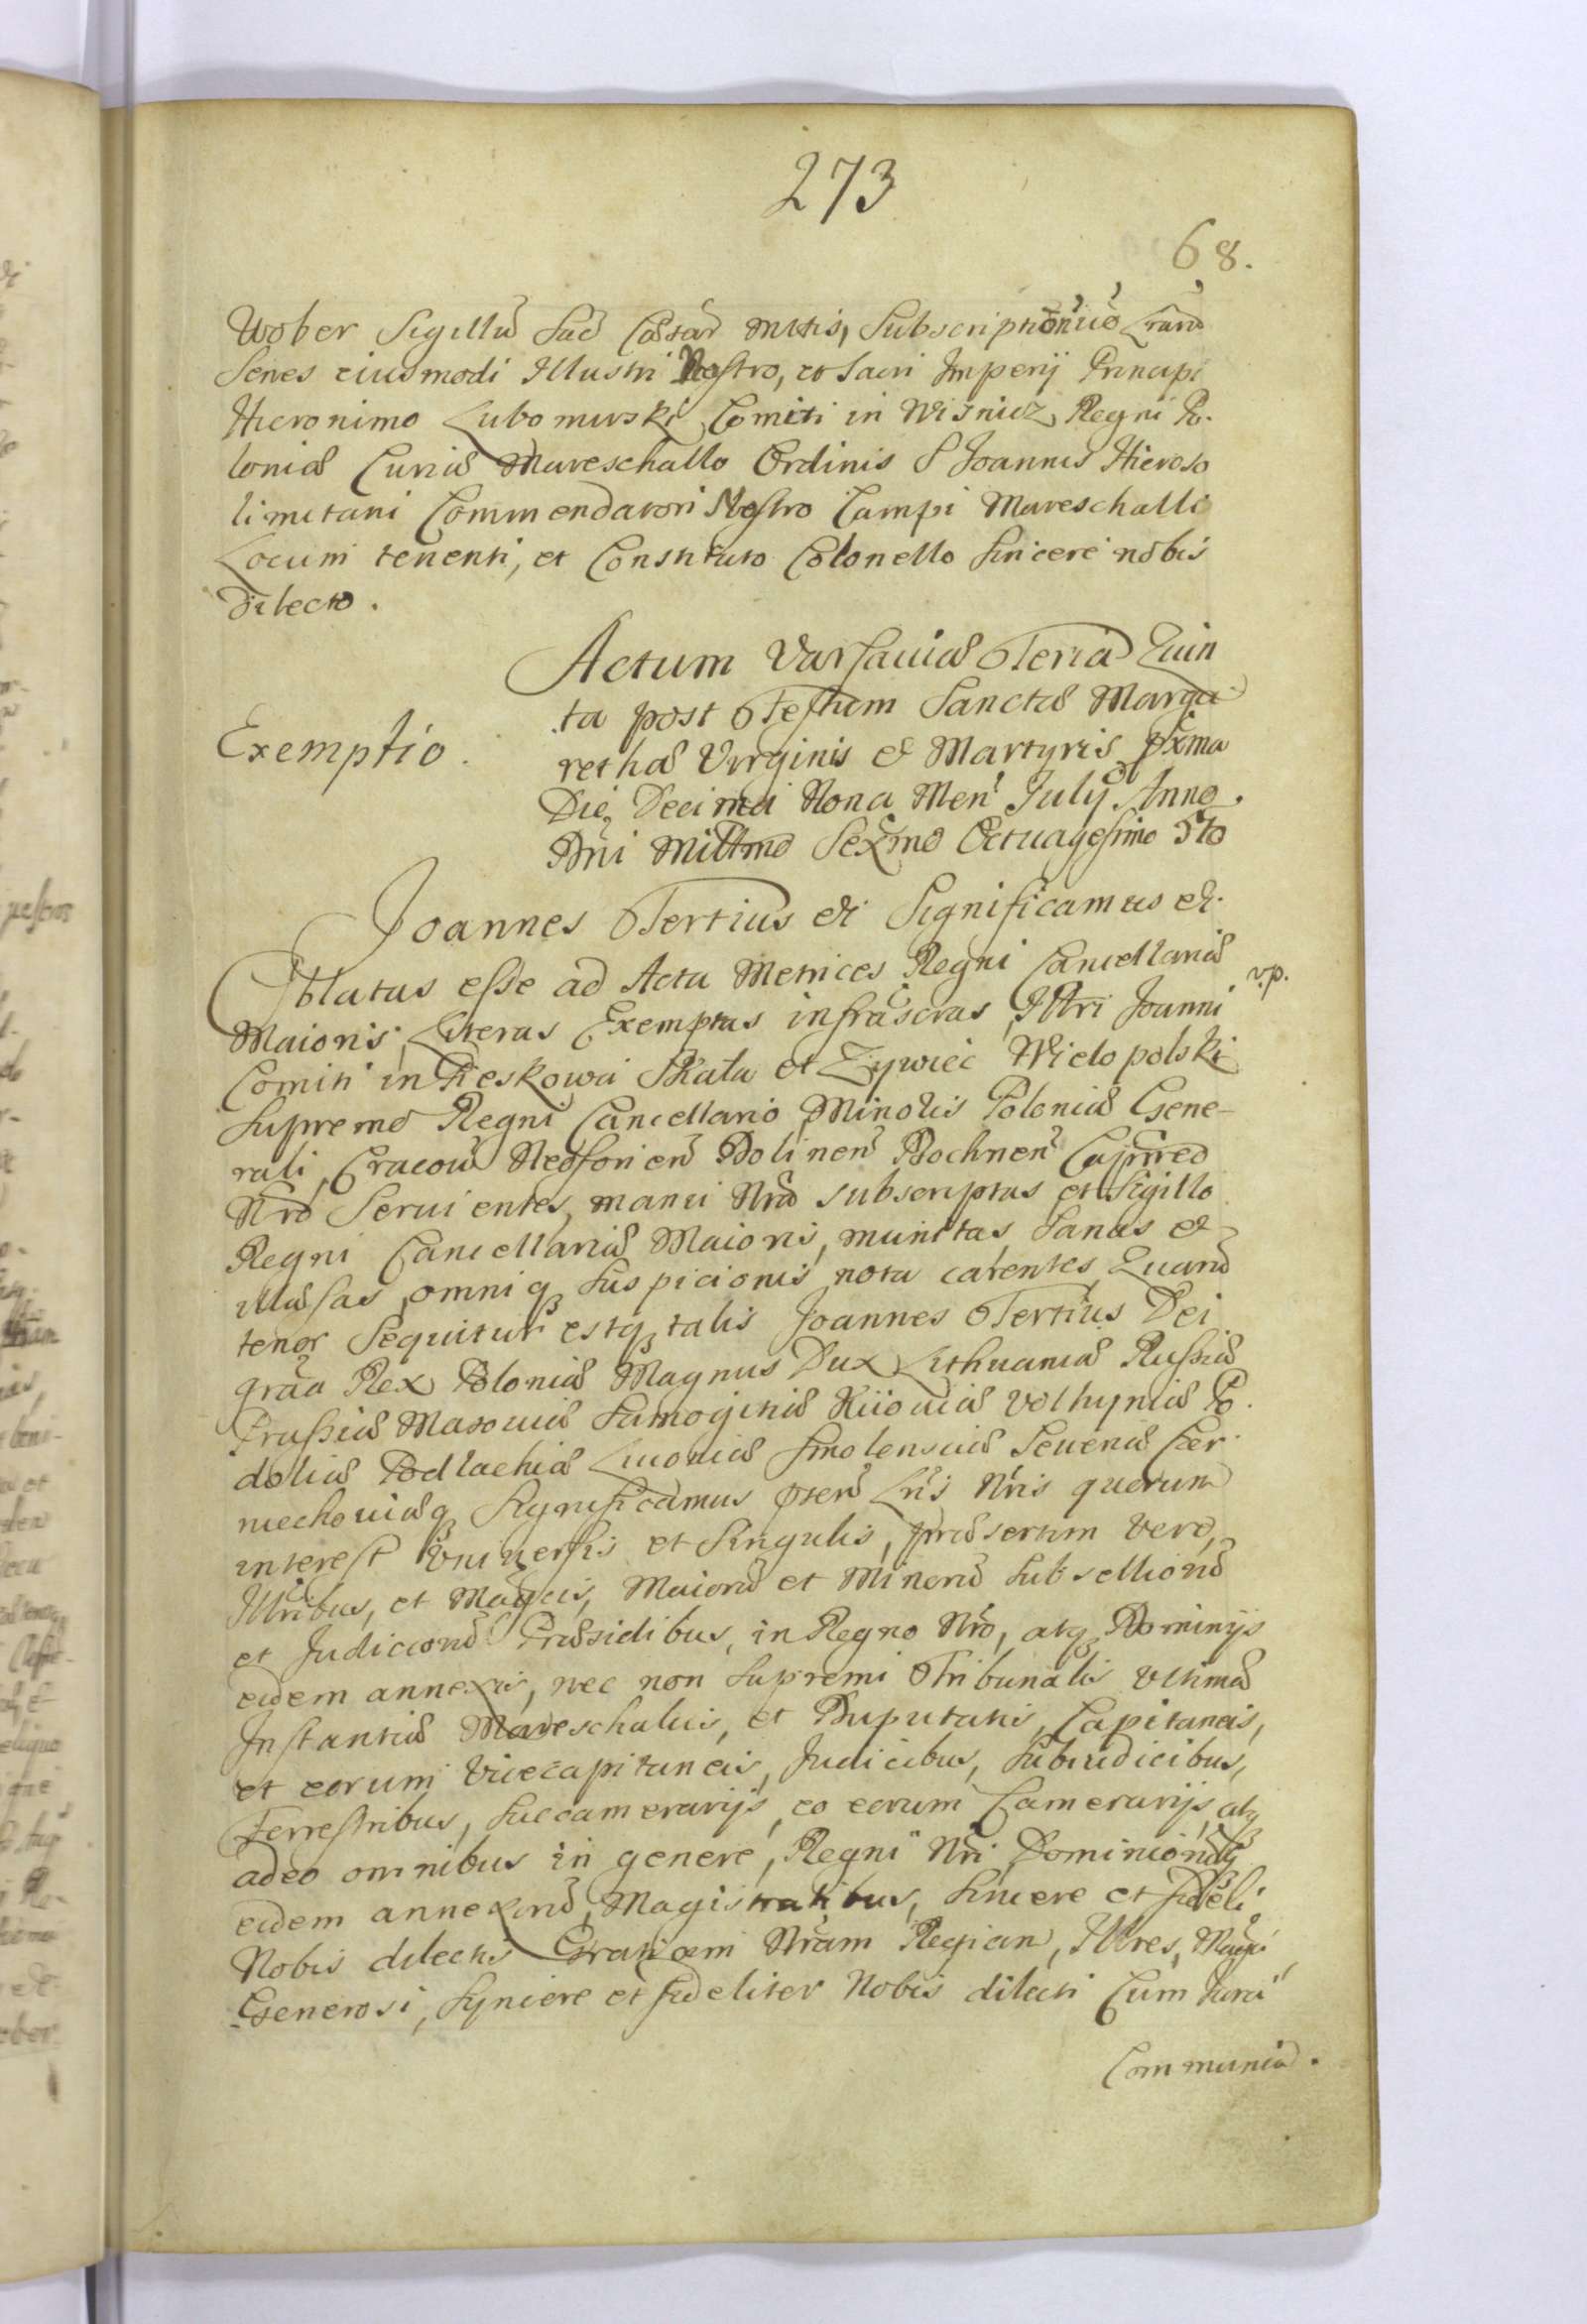 273
68.
Wober Sigillũ Sac̃ Cæsar Mttis, Subscriptionũ Lrarũ
Series eiusmodi Illustri Nostro, et Sacri Imperij Principi
Hieronimo Lubomirski Comiti in Wisnicz Regni Po.
loniæ Curiæ Mareschallo Ordinis S Joannis Hieroso
limitani Commendatori Nostro Campi Mareschalli
Locum tenenti, et Constituto Colonello Sincere nobis
dilecto.
Actum Varsauiæ Feria Quin
ta post Festum Sanctæ Marga
rethæ Virginis & Martyris pxma
Exemptio.
Die Decima Nona Men July Anno
Dni Millmo Sexmo Octuagesimo 5to
Joannes Tertius etc Significamus etc.
Oblatas esse ad Acta Metrices Regni Cancellariæ
v.p.
Maioris Literas Exemptas infrascras Illtri Joanni
Comiti in Pieskowa Skała et Zywiec Wielopolski
Supremo Regni Cancellario, Minoris Poloniæ Gene-
rali, Cracou Neoforien Bolinen Bochnen Capneo
Nro Seruientes, manu Nra subscriptas et Sigillo
Regni Cancellariæ Maioris, munitas, Sanas et
illæsas, omniq suspicionis nota carentes, Quarũ
tenor Sequitur estq talis Joannes Tertius Dei
graa Rex Poloniæ Magnus Dux Lithuaniæ Russiæ
Prussiæ Masouiæ Samogitiæ Kiiouiæ Volhyniæ Po.
doliæ Podlachiæ Liuoniæ Smolensciæ Seueriæ Czer
niechouiæq Significamus pſen Lris Nris quorum
interest Vniuersis et Singulis, præsertim vero,
Illribus, et Magcis, Maiorũ et Minorũ Subsellionũ
et Judiciorũ Præsidibus, in Regno Nro, atq Dominijs
eidem annexis, nec non Supremi Tribunalis vltimæ
Instantiæ Mareschalcis, et Duputatis, Capitaneis,
et eorum Vicecapitaneis, Judicibus, Subiudicibus,
Terrestribus, Succamerarijs, eo eorum Camerarijs, atq
adeo omnibus in genere, Regni Nri Dominiorũq
eidem annexorũ, Magistratibus, Sincere et fideli
Nobis dilectis Gratiam Nram Regiam, Illres, Magci
Generosi, Syncere et fideliter Nobis dilecti Cum Iura
Communia.